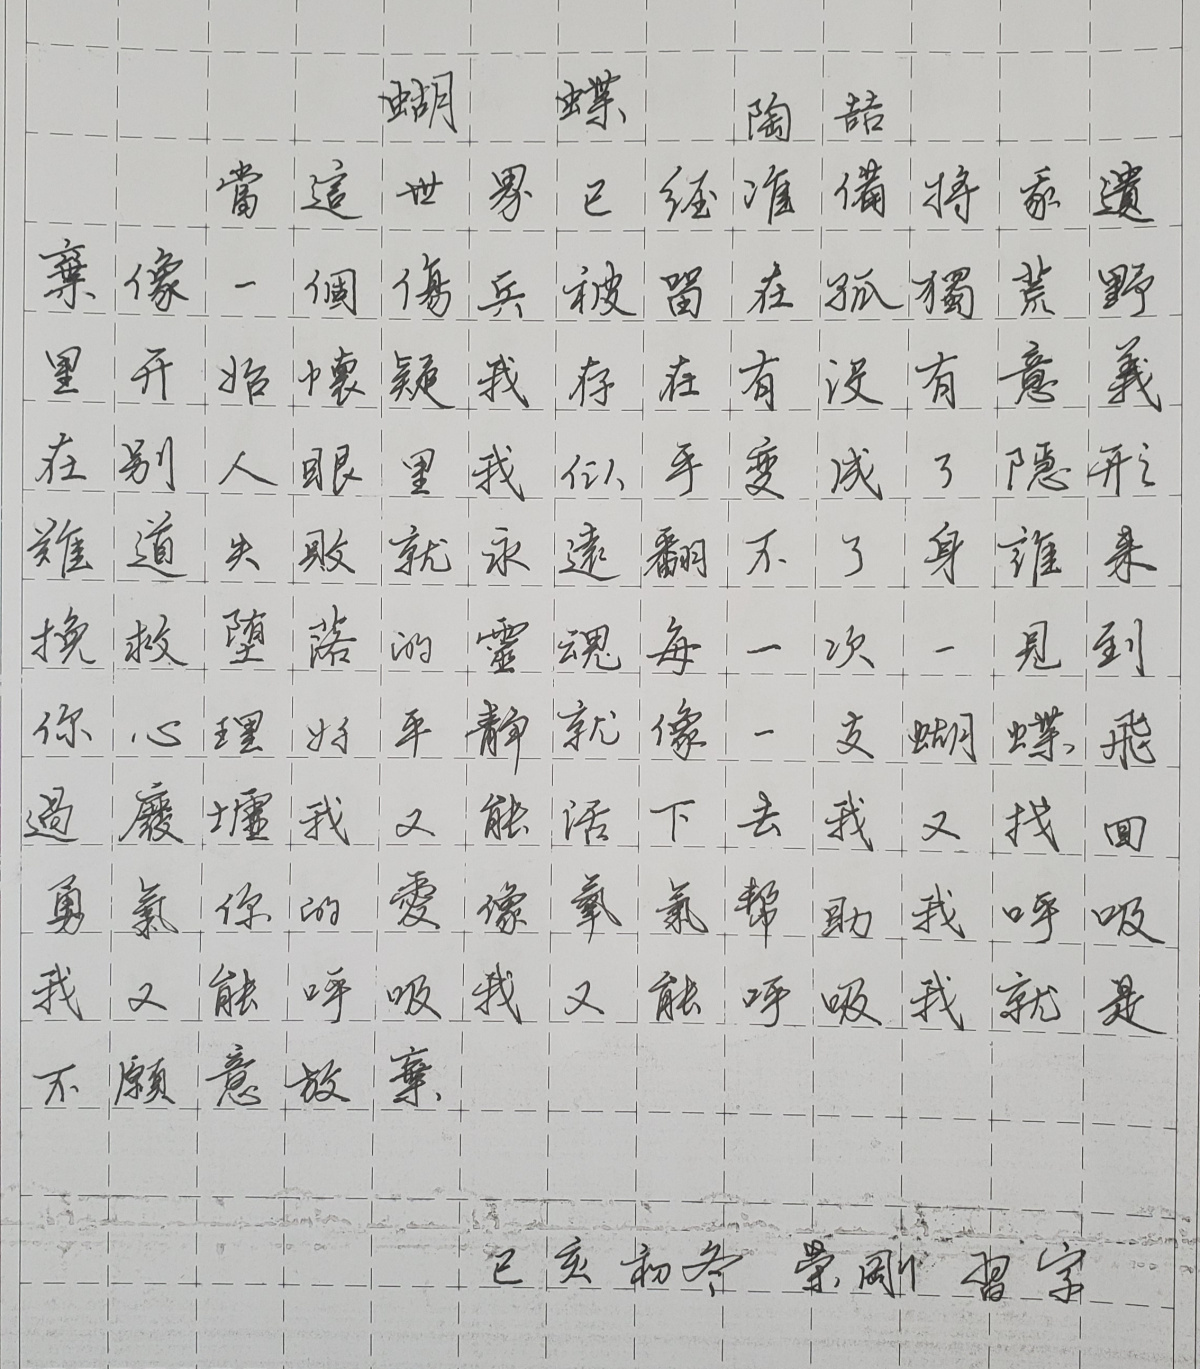 蝴蝶 陶喆
當這世界已經准備將我遺
棄像一個傷兵被留在孤獨荒野
里开始懷疑我存在有沒有意義
在别人眼里我似乎变成了隱形
難道失敗就永遠翻不了身誰来
挽救堕落的靈魂每一次一見到
你心理好平靜就像一支蝴蝶飛
過廢墟我又能活下去我又找回
勇氣你的愛像氧氣幇助我呼吸
我又能呼吸我又能呼吸我就是
不願意放棄
己亥初冬 榮剛 習字